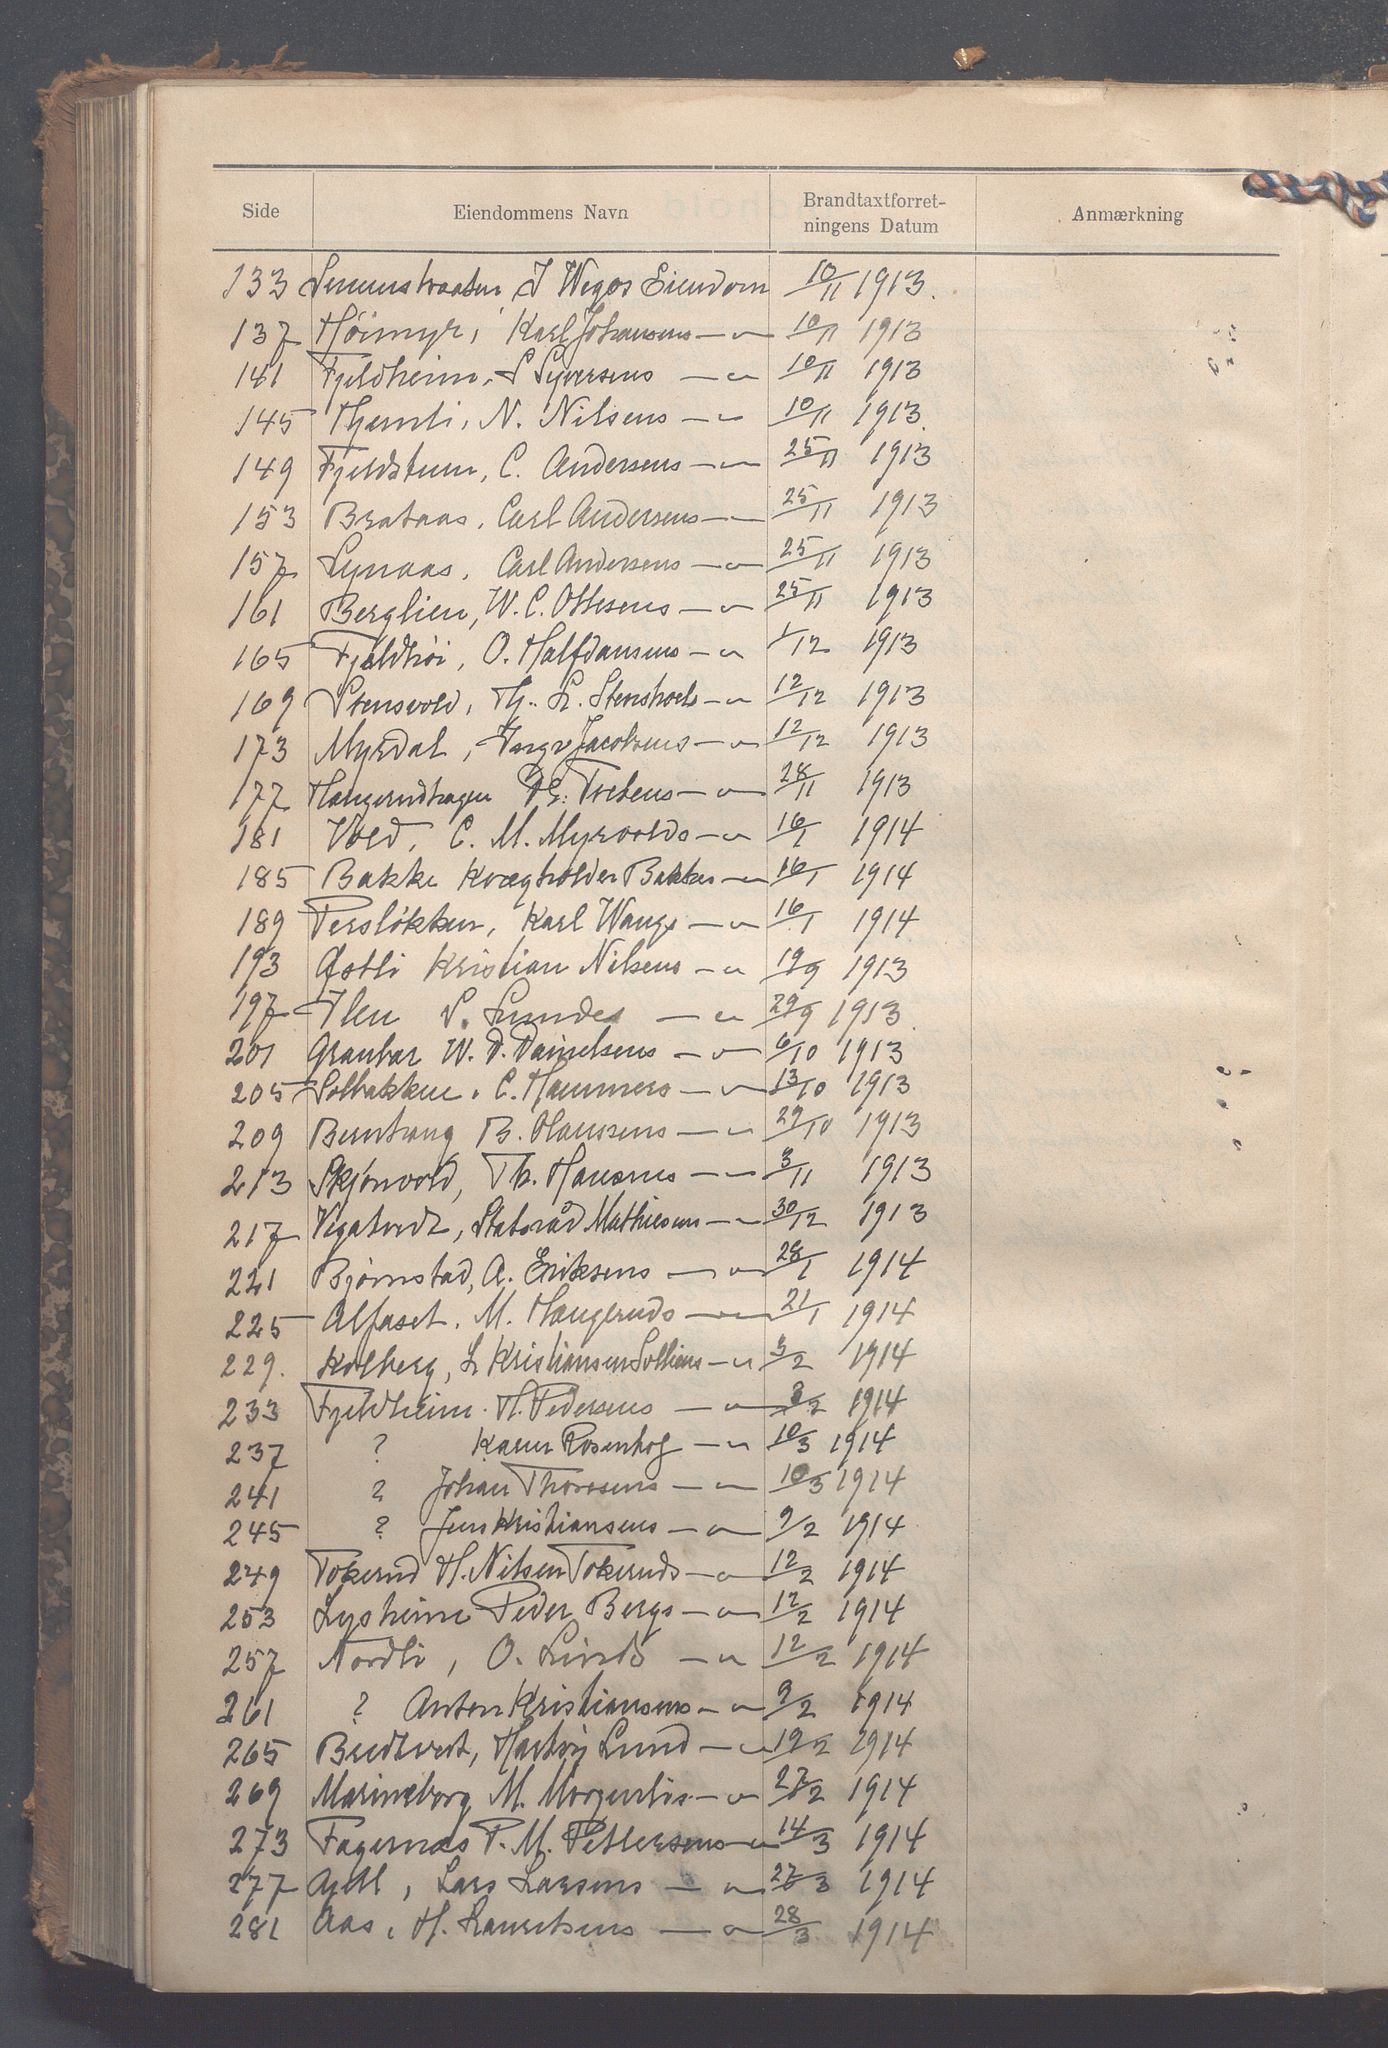 Side Eiendommens Navn Brandtaxtforret-
ningens Datum Anmærkning
133 J Weges Eiendom 10/11 1913.
137 Høimyr, Karl Johansens — " — 10/11 1913
141 Fjeldheim, S Syversens — " 10/11 1913
145 N. Nilsens — " 10/11 1913.
149 Fjeldstuen, C. Andersens — " — 25/11 1913
153 Brataas, Carl Andersens — " — 25/11 1913
157 Lynaas, Carl Andersens — " — 25/11 1913
161 Berglien, W. C. Ottesens — " 25/11 1913
165 Fjeldhøi, O. Halfdansens — " 1/12 1913
169 Stensvold, Th. L. — " 12/12 1913
173 Myrdal, Ingv Jacobsens — " 12/12 1913
177 Haugerudhagen Tvetens — " — 28/11 1913
181 Vold, C. M. Myrvolds — " 16/1 1914
185 Bakke Kvægholder Bakkes — " 16/1 1914
189 Persløkken, Karl Wangs — " — 16/1 1914
193 Østli Kristian Nilsens — " 19/9 1913
197 S. Lundes — " 29/9 1913
201 Granbar W. D. Danielsens — " — 6/10 1913
205 Solbakken, C. Hammers — " 13/10 1913
209 B. Hanssens — " 29/10 1913
213 Skjønvold, Th. Hansens — " 3/11 1913
217 Statsråd Mathiesens — " 30/12 1913
221 Bjørnstad, A. Eriksens — " 28/1 1914
225 Alfaset, M. Haugeruds — " 21/1 1914
229. Kolberg, L Kristiansen Solliens — " 3/2 1914
233 Fjeldheim H. Pedersens — " 3/2 1914
237 ? Karen Rosenhof — " 10/3 1914
241 ? Johan Thoresens — " — 10/3 1914
245 ? Jens Kristiansens — " — 9/2 1914
249 Tokerud H. Nilsen Tokeruds — " 12/2 1914
253 Lysheim Peder Bergs — " — 12/2 1914
257 Nordli, O. Linds — " 12/2 1914
261 ? Anton Kristiansens — " 9/2 1914
265 Bredtvedt, Lund — " 19/2 1914
269 Marineborg M. — " 27/2 1914
273 Fagernæs P. M. Pettersens — " 14/3 1914
277 Lars Larsens — " 27/3 1914
281 Aas, H. Lauritsens — " 28/3 1914